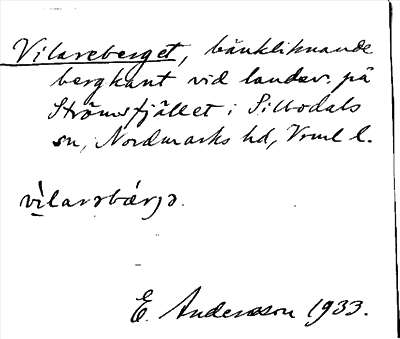 Vilareberget, bänkliknande
bergkant vid landsv. på
Strömsfjället i Sillbodals
sn, Nordmarks hd, Vrml l.
vìlarəbǽrjə.
E. Andersson 1933.